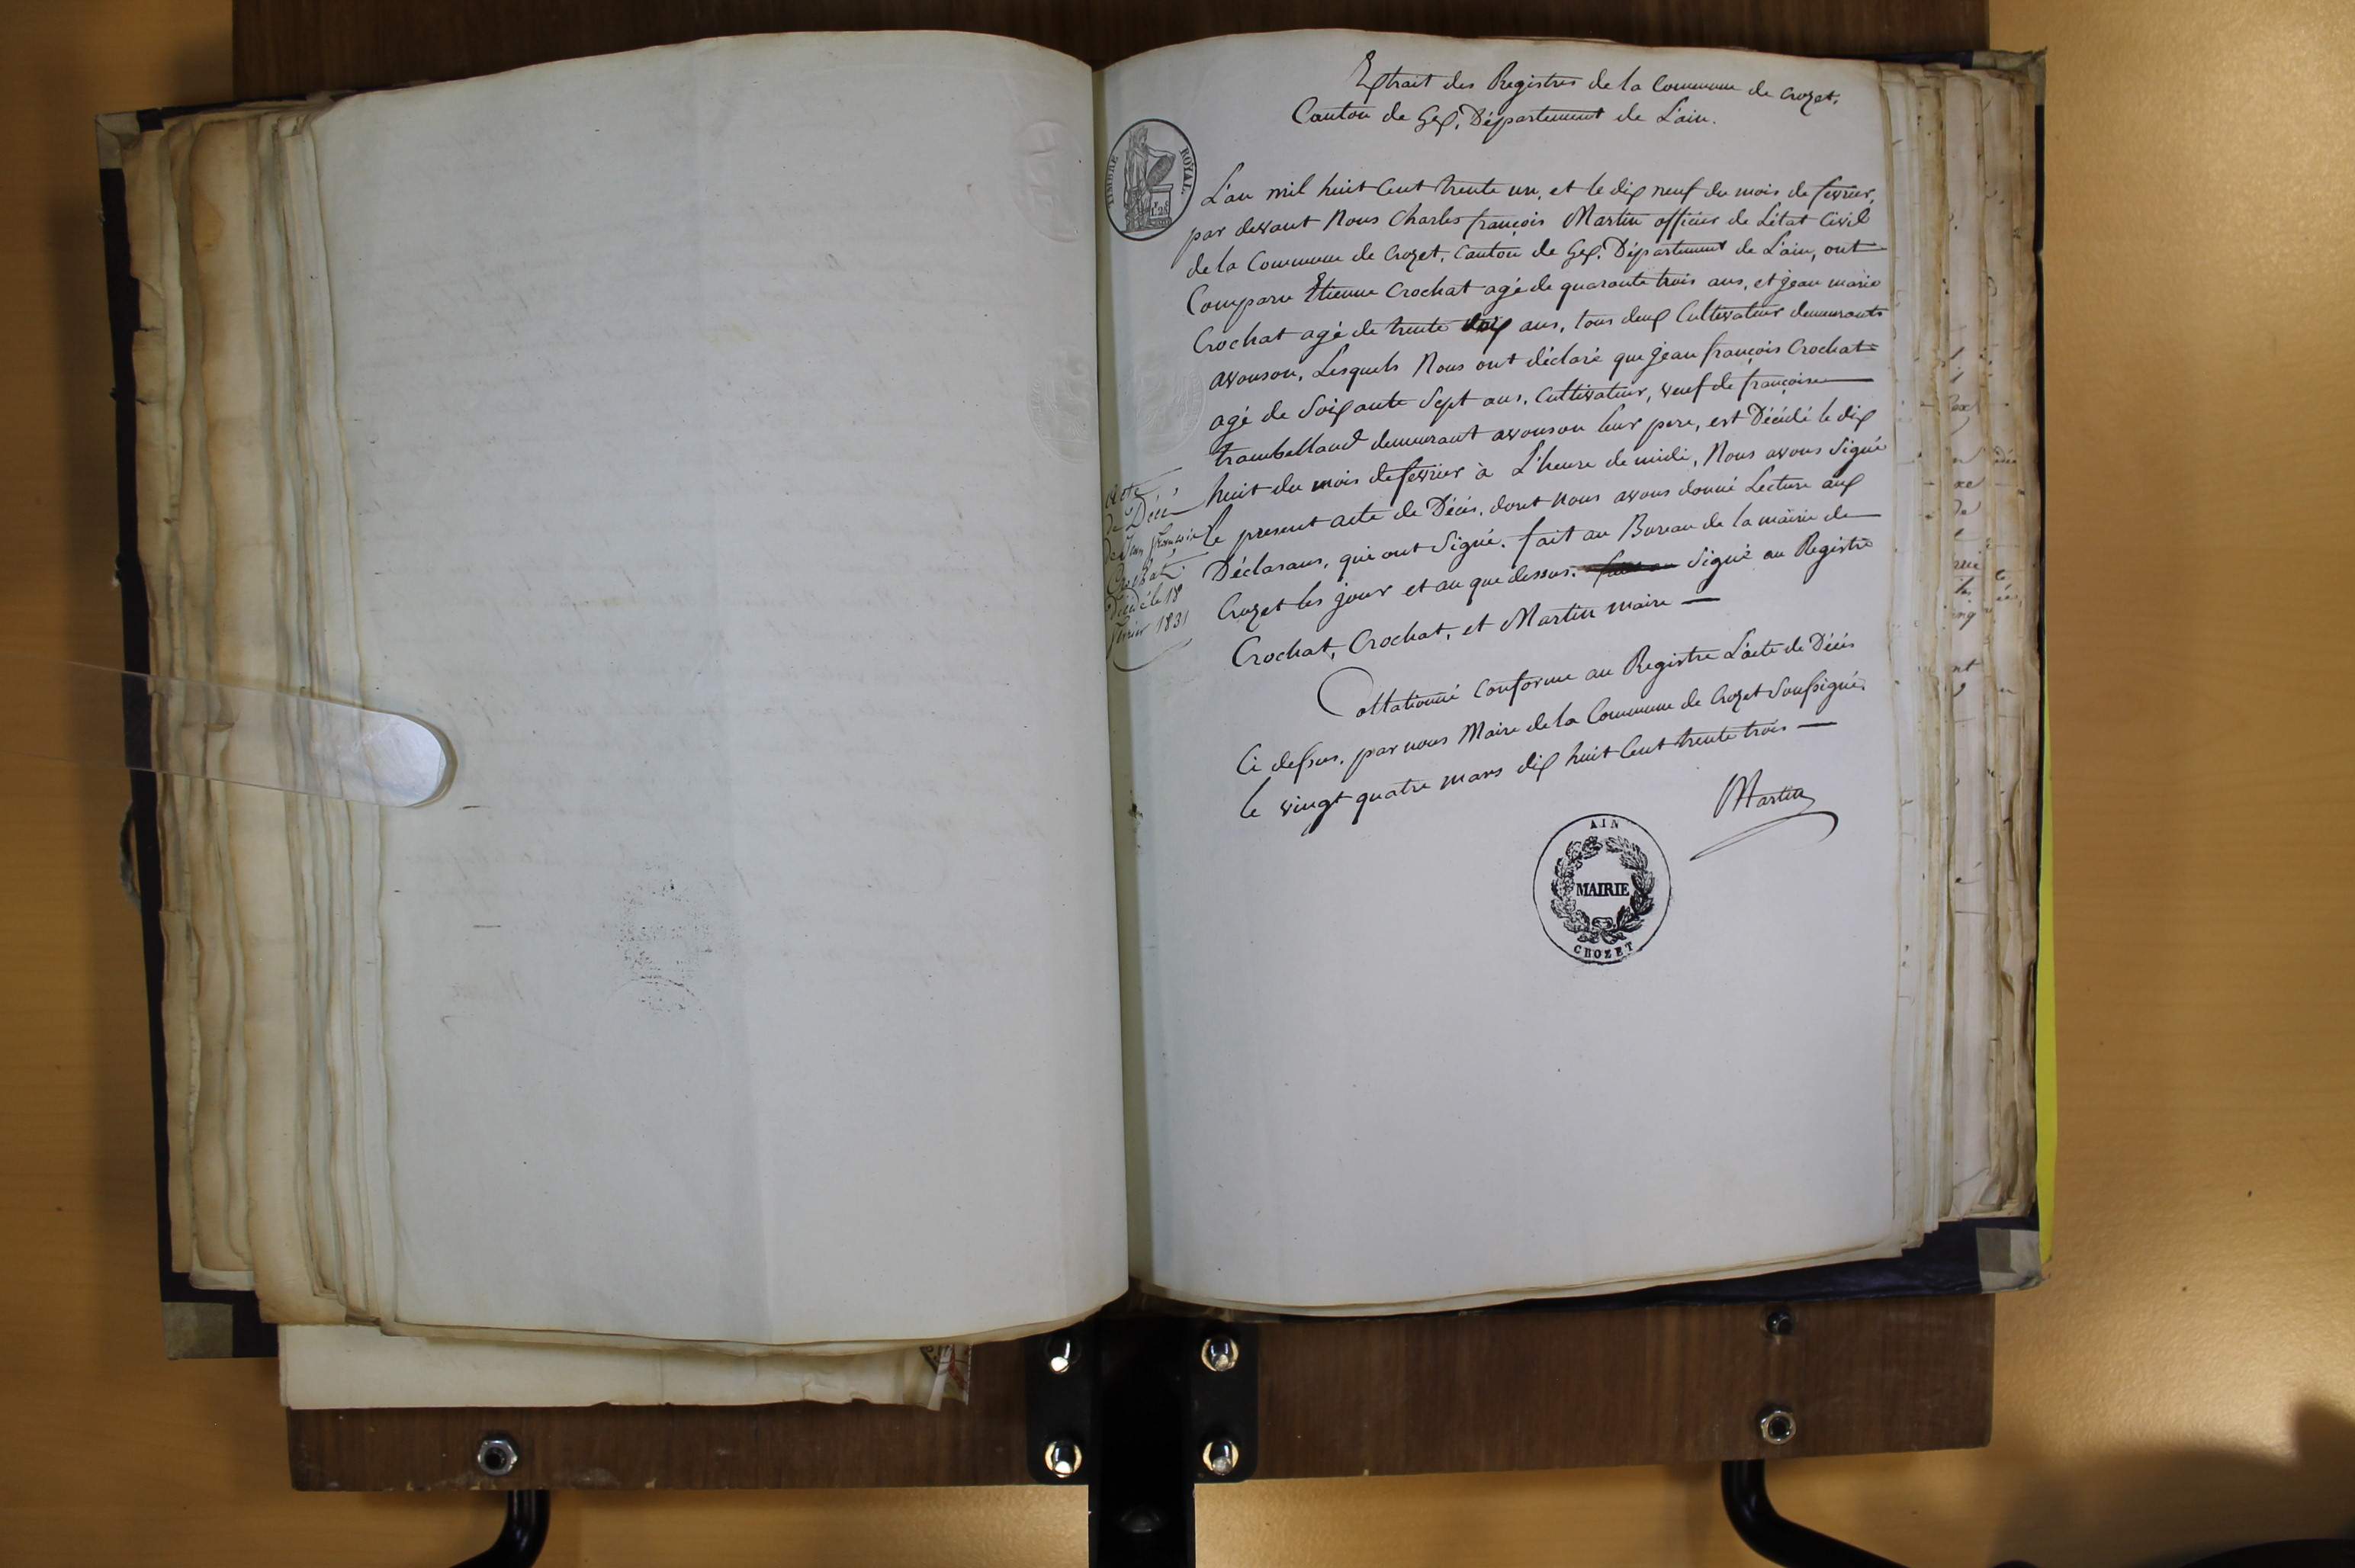 Extrait des Registres de la Commune de Crozet,
Canton de Gex, Département de L'ain.
TIMBRE ROYAL
L'an mil huit Cent trente un, et le dix neuf du mois de fevrier,
par devant Nous Charles françois Martin officier de L'état Civil
de la Commune de Crozet, Canton de Gex, Département de L'ain, ont
Comparu Etienne Crochat agé de quarante trois ans, et jean marie
Crochat agé de trente ans, tous deux Cultivateur demeurants
avouson, Lesquels Nous ont déclaré que jean françois Crochat
agé de Soixante Sept ans, Cultivateur, veuf de françoise
trambelland demeurant avouson leur pere, est Décédé le dix
huit du mois de fevrier à L'heure de midi, Nous avons Signé
le present acte de Décés, dont nous avons donné Lecture aux
Déclarans, qui ont Signé. fait au Bureau de la mairie de
Crozet les jour et an que dessus. Signé au Registre
Crochat, Crochat, et Martin maire
acte
de Décé
de Jean françois
Crochat
Décédé le 18
février 1831
Collationné Conforme au Registre L'acte de Décés
Ci dessus, par nous Maire de la Commune de Crozet Soussigné,
le vingt quatre mars dix huit Cent trente trois
Martin
AIN
MAIRIE
CROZET